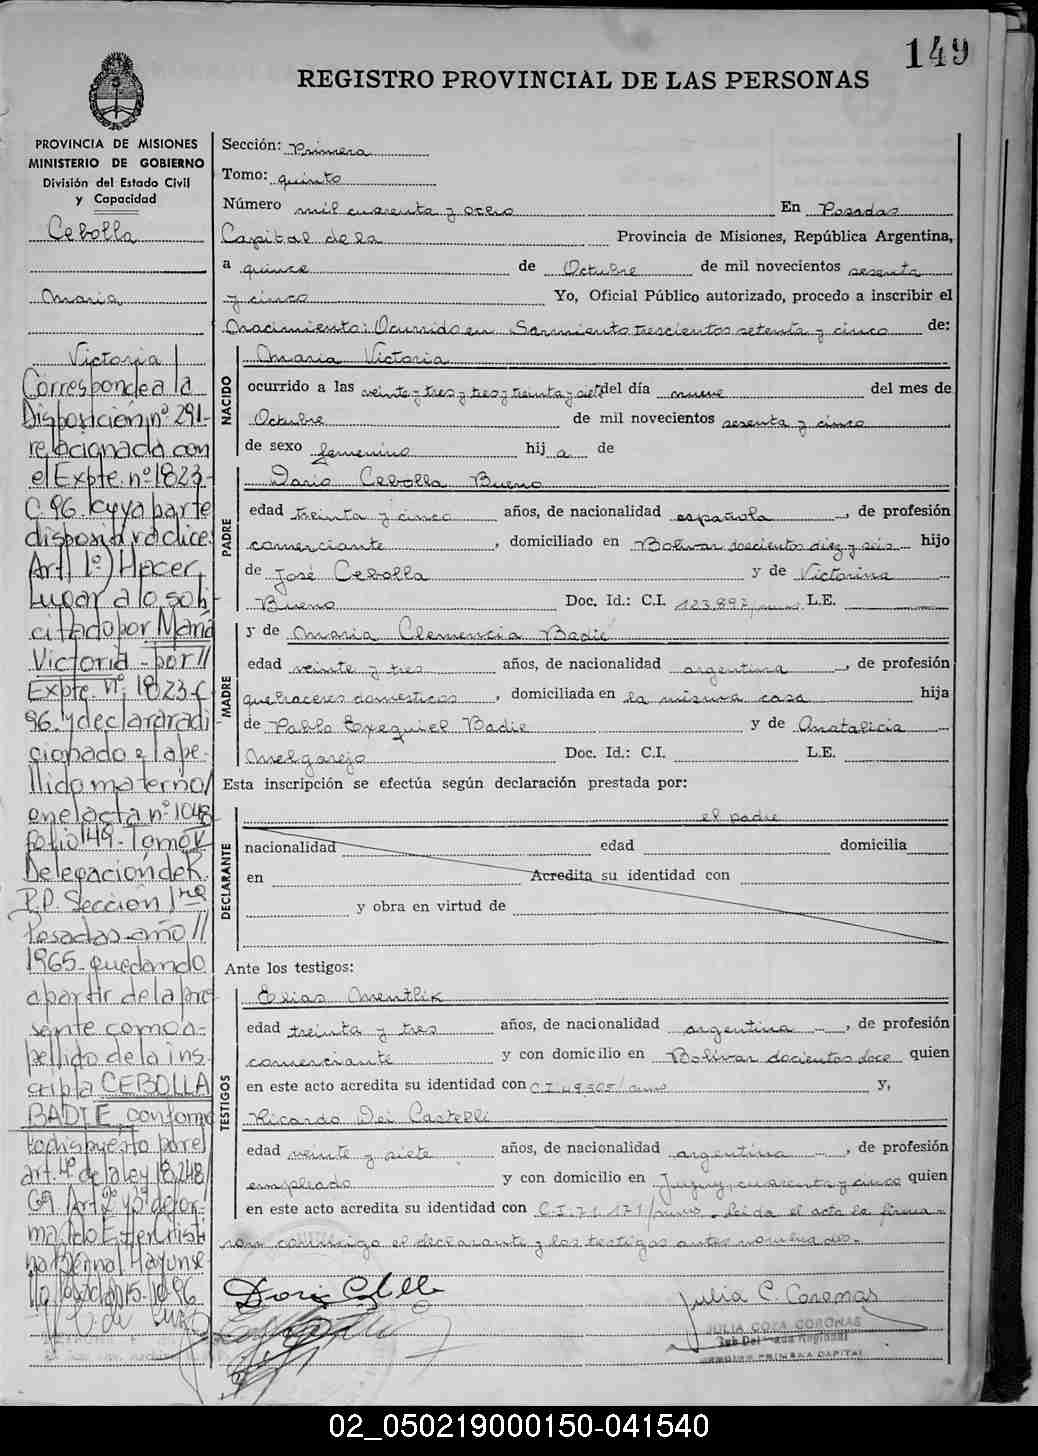 149
REGISTRO PROVINCIAL DE LAS PERSONAS
PROVINCIA DE MISIONES
MINISTERIO DE GOBIERNO
División del Estado Civil
y Capacidad
Cebolla
Maria
Victoria
Corresponde a la
Disposicion nº 291-
relacionada con
el Expte. nº 1823-
C. 96. cuya parte
dispositiva dice:
Art. 1º) Hacer
Lugar a lo soli-
citado por Maria
Victoria - por //
Expte. nº 1823-C
96. y declarar adi
cionado el ape-
llido materno
en el acta nº 1048
folio 149- Tomo V
Delegacion del R.
P.P. Sección 1ra
Posadas año //
1965- quedando
a partir de la pre
sente como a-
pellido de la ins
cripta CEBOLLA
BADIE, conforme
lo dispuesto por el
art. 4º de la ley 18.248/
69. Art 2º y 3º de for-
ma. Fdo Esther Cristi
na Bernal
Posadas 15-10-96
Sección: Primera
Tomo: quinto
Número mil cuarenta y ocho En Posadas
Capital de la Provincia de Misiones, República Argentina,
a quince de Octubre de mil novecientos sesenta
y cinco Yo, Oficial Público autorizado, procedo a inscribir el
Nacimiento: Ocurrido en Sarmiento trescientos setenta y cinco de:
NACIDO
Maria Victoria
ocurrido a las veinte y tres y tres y treinta y siete del día nueve del mes de
Octubre de mil novecientos sesenta y cinco
de sexo femenino hij a de
PADRE
Dario Cebolla Bueno
edad treinta y cinco años, de nacionalidad española, de profesión
comerciante, domiciliado en Bolivar doscientos diez y seis hijo
de José Cebolla y de Victorina
Bueno Doc. Id.: C.I. 123.897/mnes L.E.
MADRE
y de Maria Clemencia Badie
edad veinte y tres años, de nacionalidad argentina, de profesión
quehaceres domesticos, domiciliada en la misma casa hija
de Pablo Exequiel Badie y de Anatalicia
Melgarejo Doc. Id.: C.I. L.E.
Esta inscripción se efectúa según declaración prestada por:
DECLARANTE
el padre
nacionalidad edad domicilia
en Acredita su identidad con
y obra en virtud de
Ante los testigos:
TESTIGOS
Elias Mentlik
edad treinta y tres años, de nacionalidad argentina, de profesión
comerciante y con domicilio en Bolivar docientos doce quien
en este acto acredita su identidad con C.I. 49.505/mnes y,
Ricardo Dei Castelli
edad veinte y siete años, de nacionalidad argentina, de profesión
empleado y con domicilio en Jujuy, cuarenta y cinco quien
en este acto acredita su identidad con C.I. 71.171/mnes. Leida el acta la firma-
ron conmigo el declarante y los testigos antes nombrados.-
Dario Cebolla
Julia C. Coronas
JULIA COYA CORONAS
Sub Delegada Regional
SECCION PRIMERA CAPITAL
02_050219000150-041540